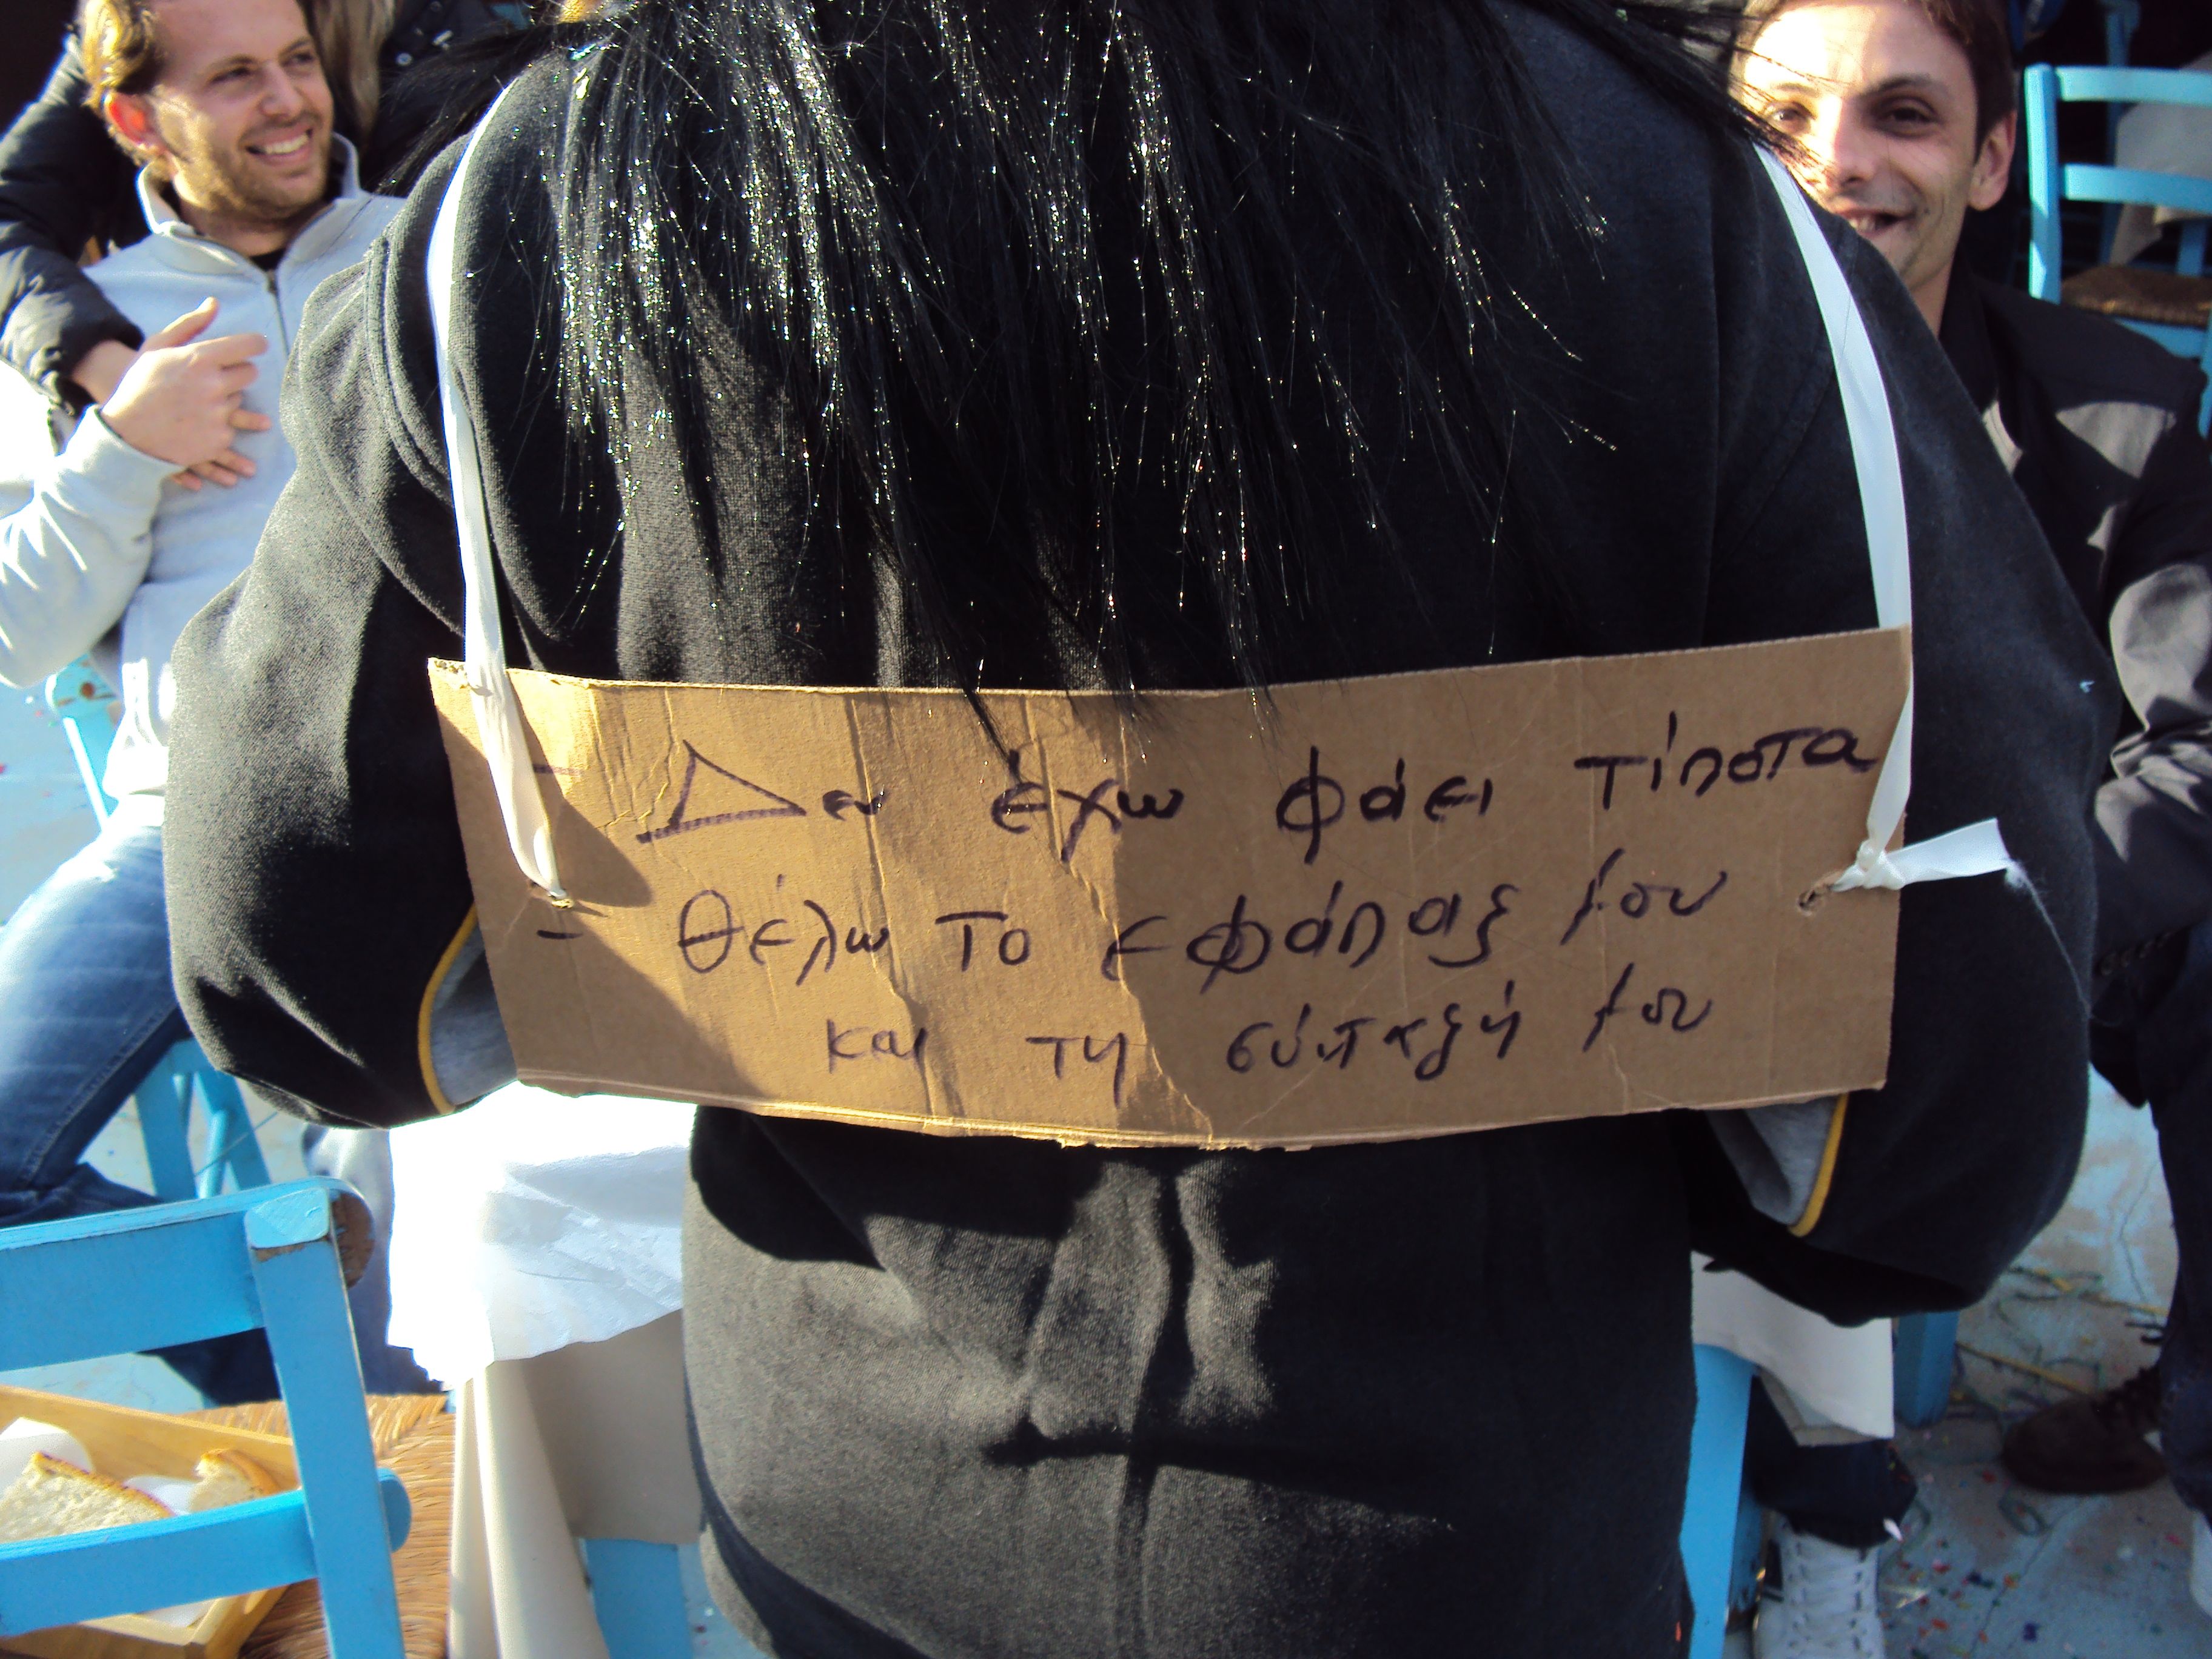 - Δεν έχω φάει τίποτα
- Θέλω το εφάπαξ μου
και τη σύνταξή μου